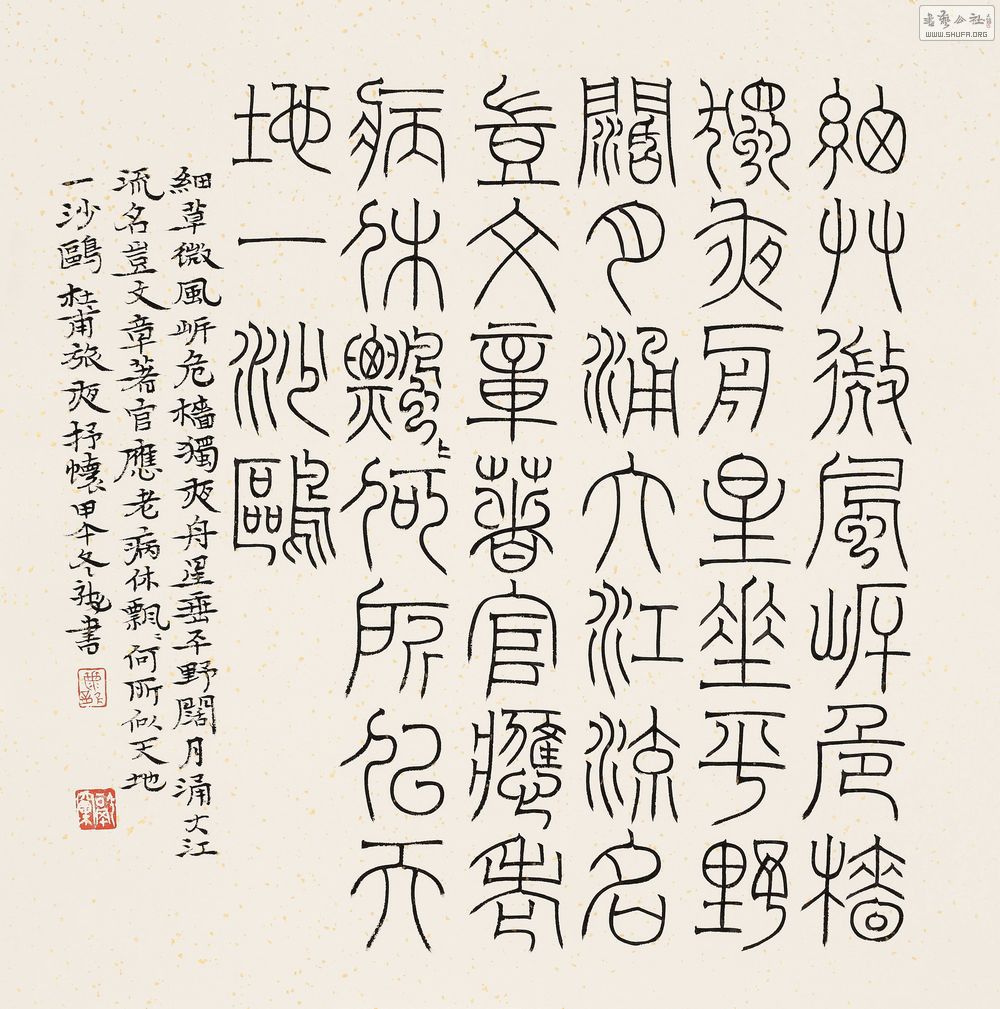 細艸微風岸危檣
獨夜舟星垂平野
闊月涌大江流名
豈文章著官應老
病休飄〻何所似天
地一沙鷗
細草微風岸危檣獨夜舟星垂平野闊月涌大江
流名豈文章著官應老病休飄〻何所似天地
一沙鷗 杜甫旅夜抒懷甲午冬書
書藝公社
WWW.SHUFA.ORG